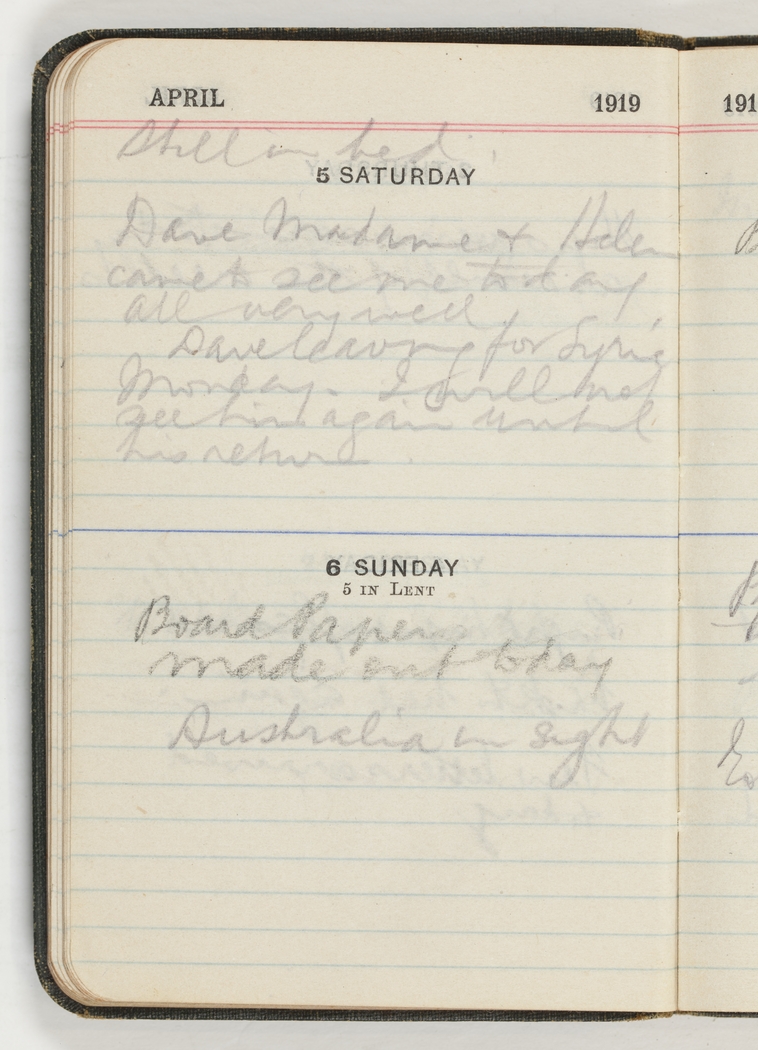 APRIL 1919
Still in bed.
5 SATURDAY
Dave Madame & Helen
came to see me today
all very well
Dave leaving for Syria
Monday. I will not
see him again until
his return.
6 SUNDAY
5 IN LENT
Board Papers
made out today
Australia in sight
191